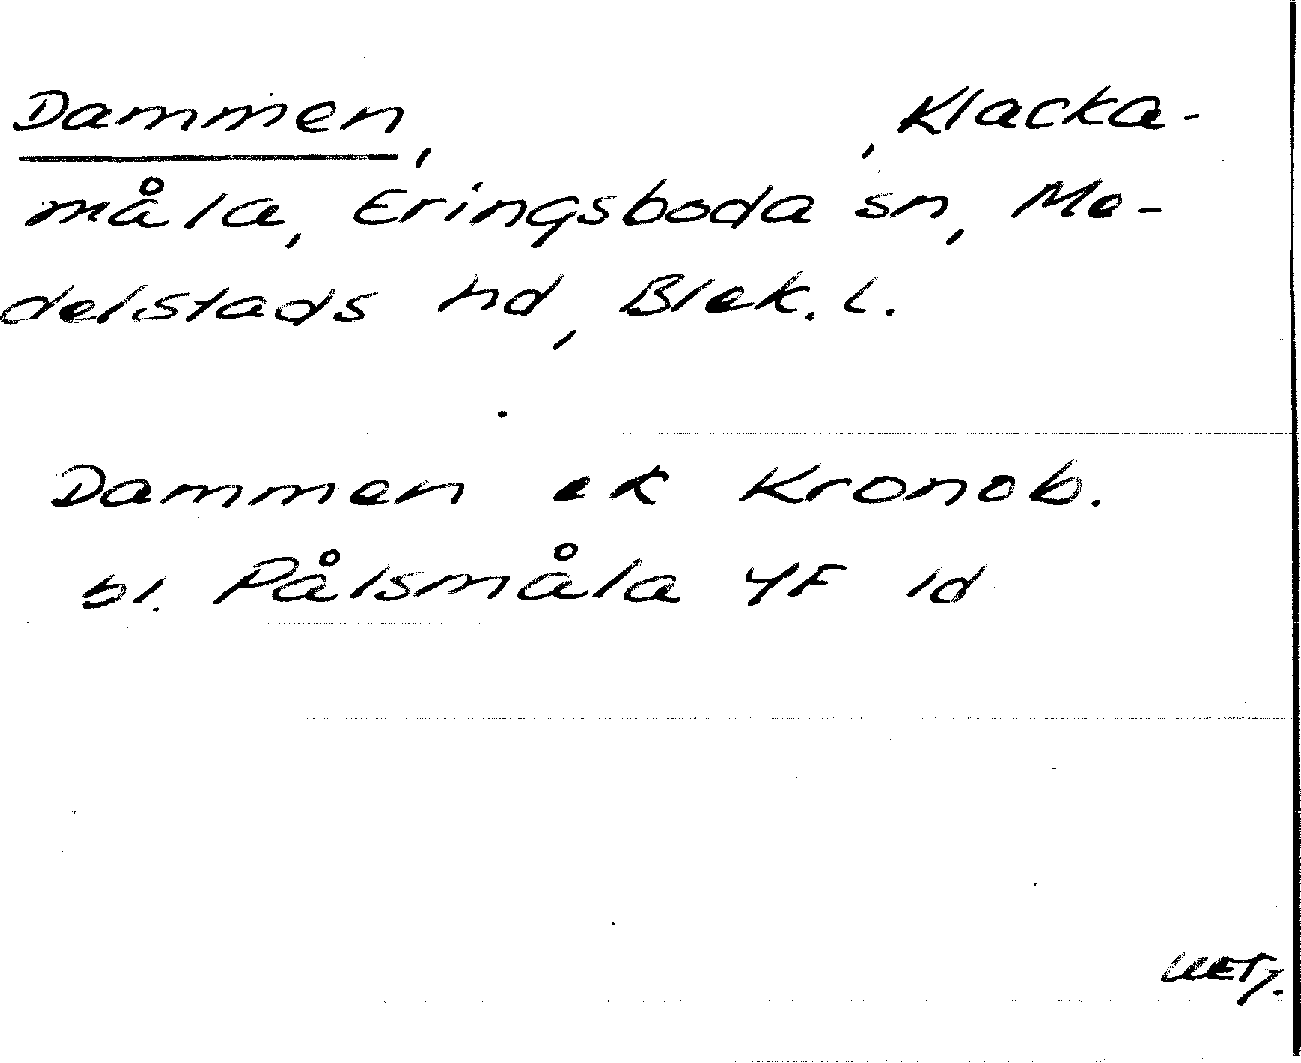 Dammen, , Klacka-
måla, Eringsboda sn, Me-
delstads hd, Blek. l.
Dammen ek Kronob.
bl. Pålsmåla 4F 1d